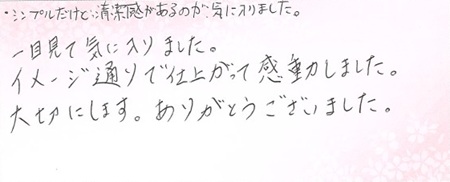 ・シンプルだけど清潔感があるのが気に入りました。
一目見て気に入りました。
イメージ通りで仕上がって感動しました。
大切にします。ありがとうございました。